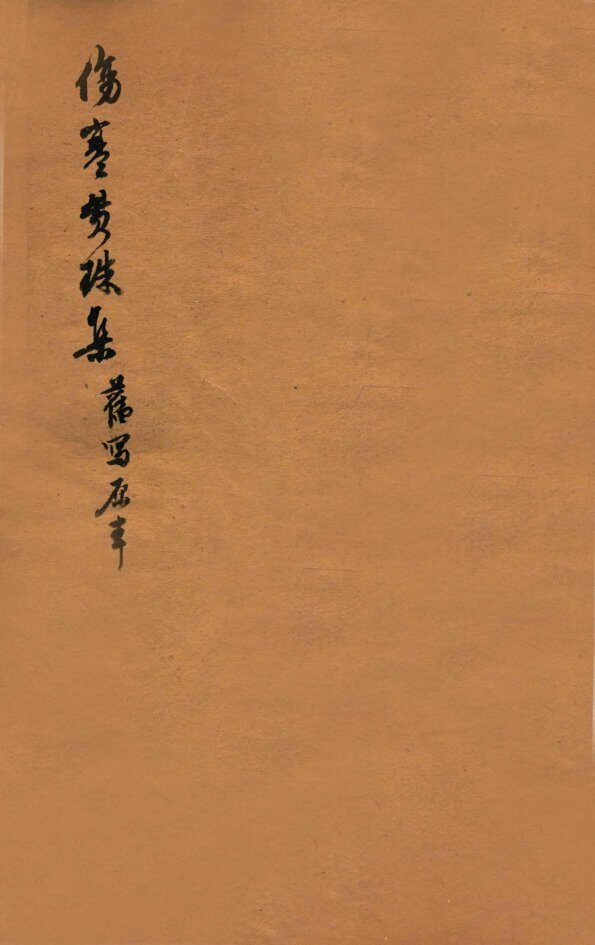 傷寒貫珠集
舊寫原本